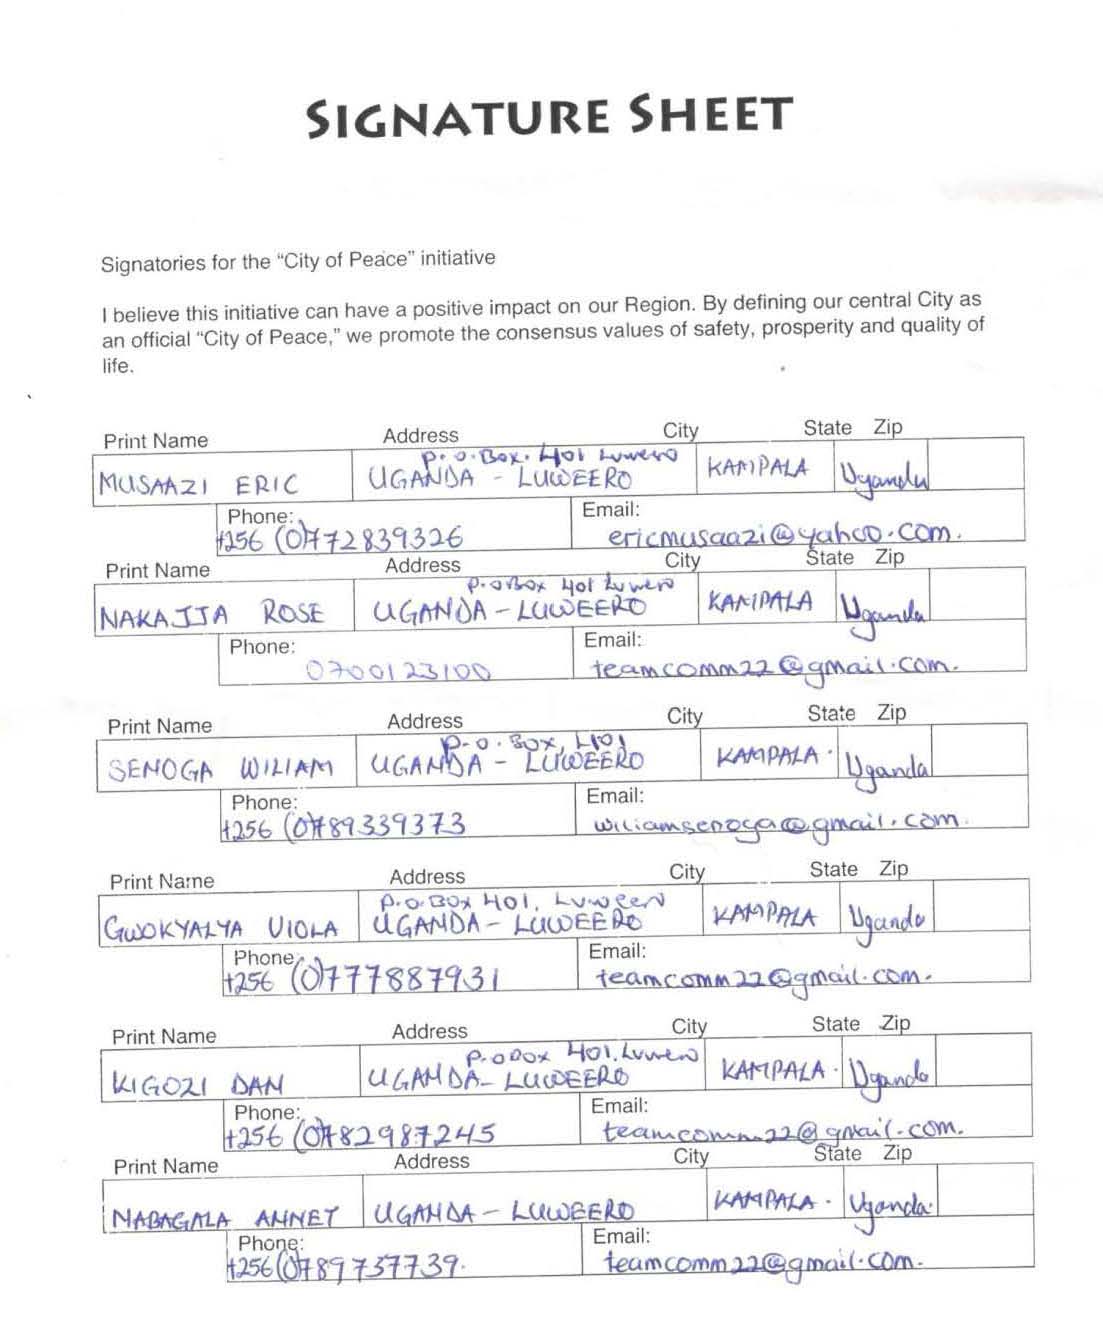 SIGNATURE SHEET
Signatories for the "City of Peace" initiative
I believe this initiative can have a positive impact on our Region. By defining our central City as
an official "City of Peace," we promote the consensus values of safety, prosperity and quality of
life.
Print Name Address City State Zip
P.O.Box. 401 Luwero
MUSAAZI ERIC UGANDA - LUWEERO KAMPALA Uganda
Phone: Email:
+256 (0)772839326 ericmusaazi@yahoo.com.
Print Name Address City State Zip
P.O Box 401 Luwero
NAKAJJA ROSE UGANDA - LUWEERO KAMPALA Uganda
Phone: Email:
0700123100 teamcomm22@gmail.com.
Print Name Address City State Zip
P.O.Box, 401
SENOGA WILIAM UGANDA - LUWEERO KAMPALA. Uganda
Phone: Email:
+256 (0)789339373 wiliamsenoga@gmail.com.
Print Name Address City State Zip
P.O.BOX 401, Luweero
GWOKYALYA VIOLA UGANDA - LUWEERO KAMPALA Uganda
Phone: Email:
+256 (0)777887931 teamcomm22@gmail.com.
Print Name Address City State Zip
P.O Box 401, Luwero
KIGOZI DAN UGANDA - LUWEERO KAMPALA. Uganda
Phone: Email:
+256 (0)782987245 teamcomm22@gmail.com.
Print Name Address City State Zip
NABAGALA ANNET UGANDA - LUWEERO KAMPALA. Uganda.
Phone: Email:
+256(0)789737739. teamcomm22@gmail.com.